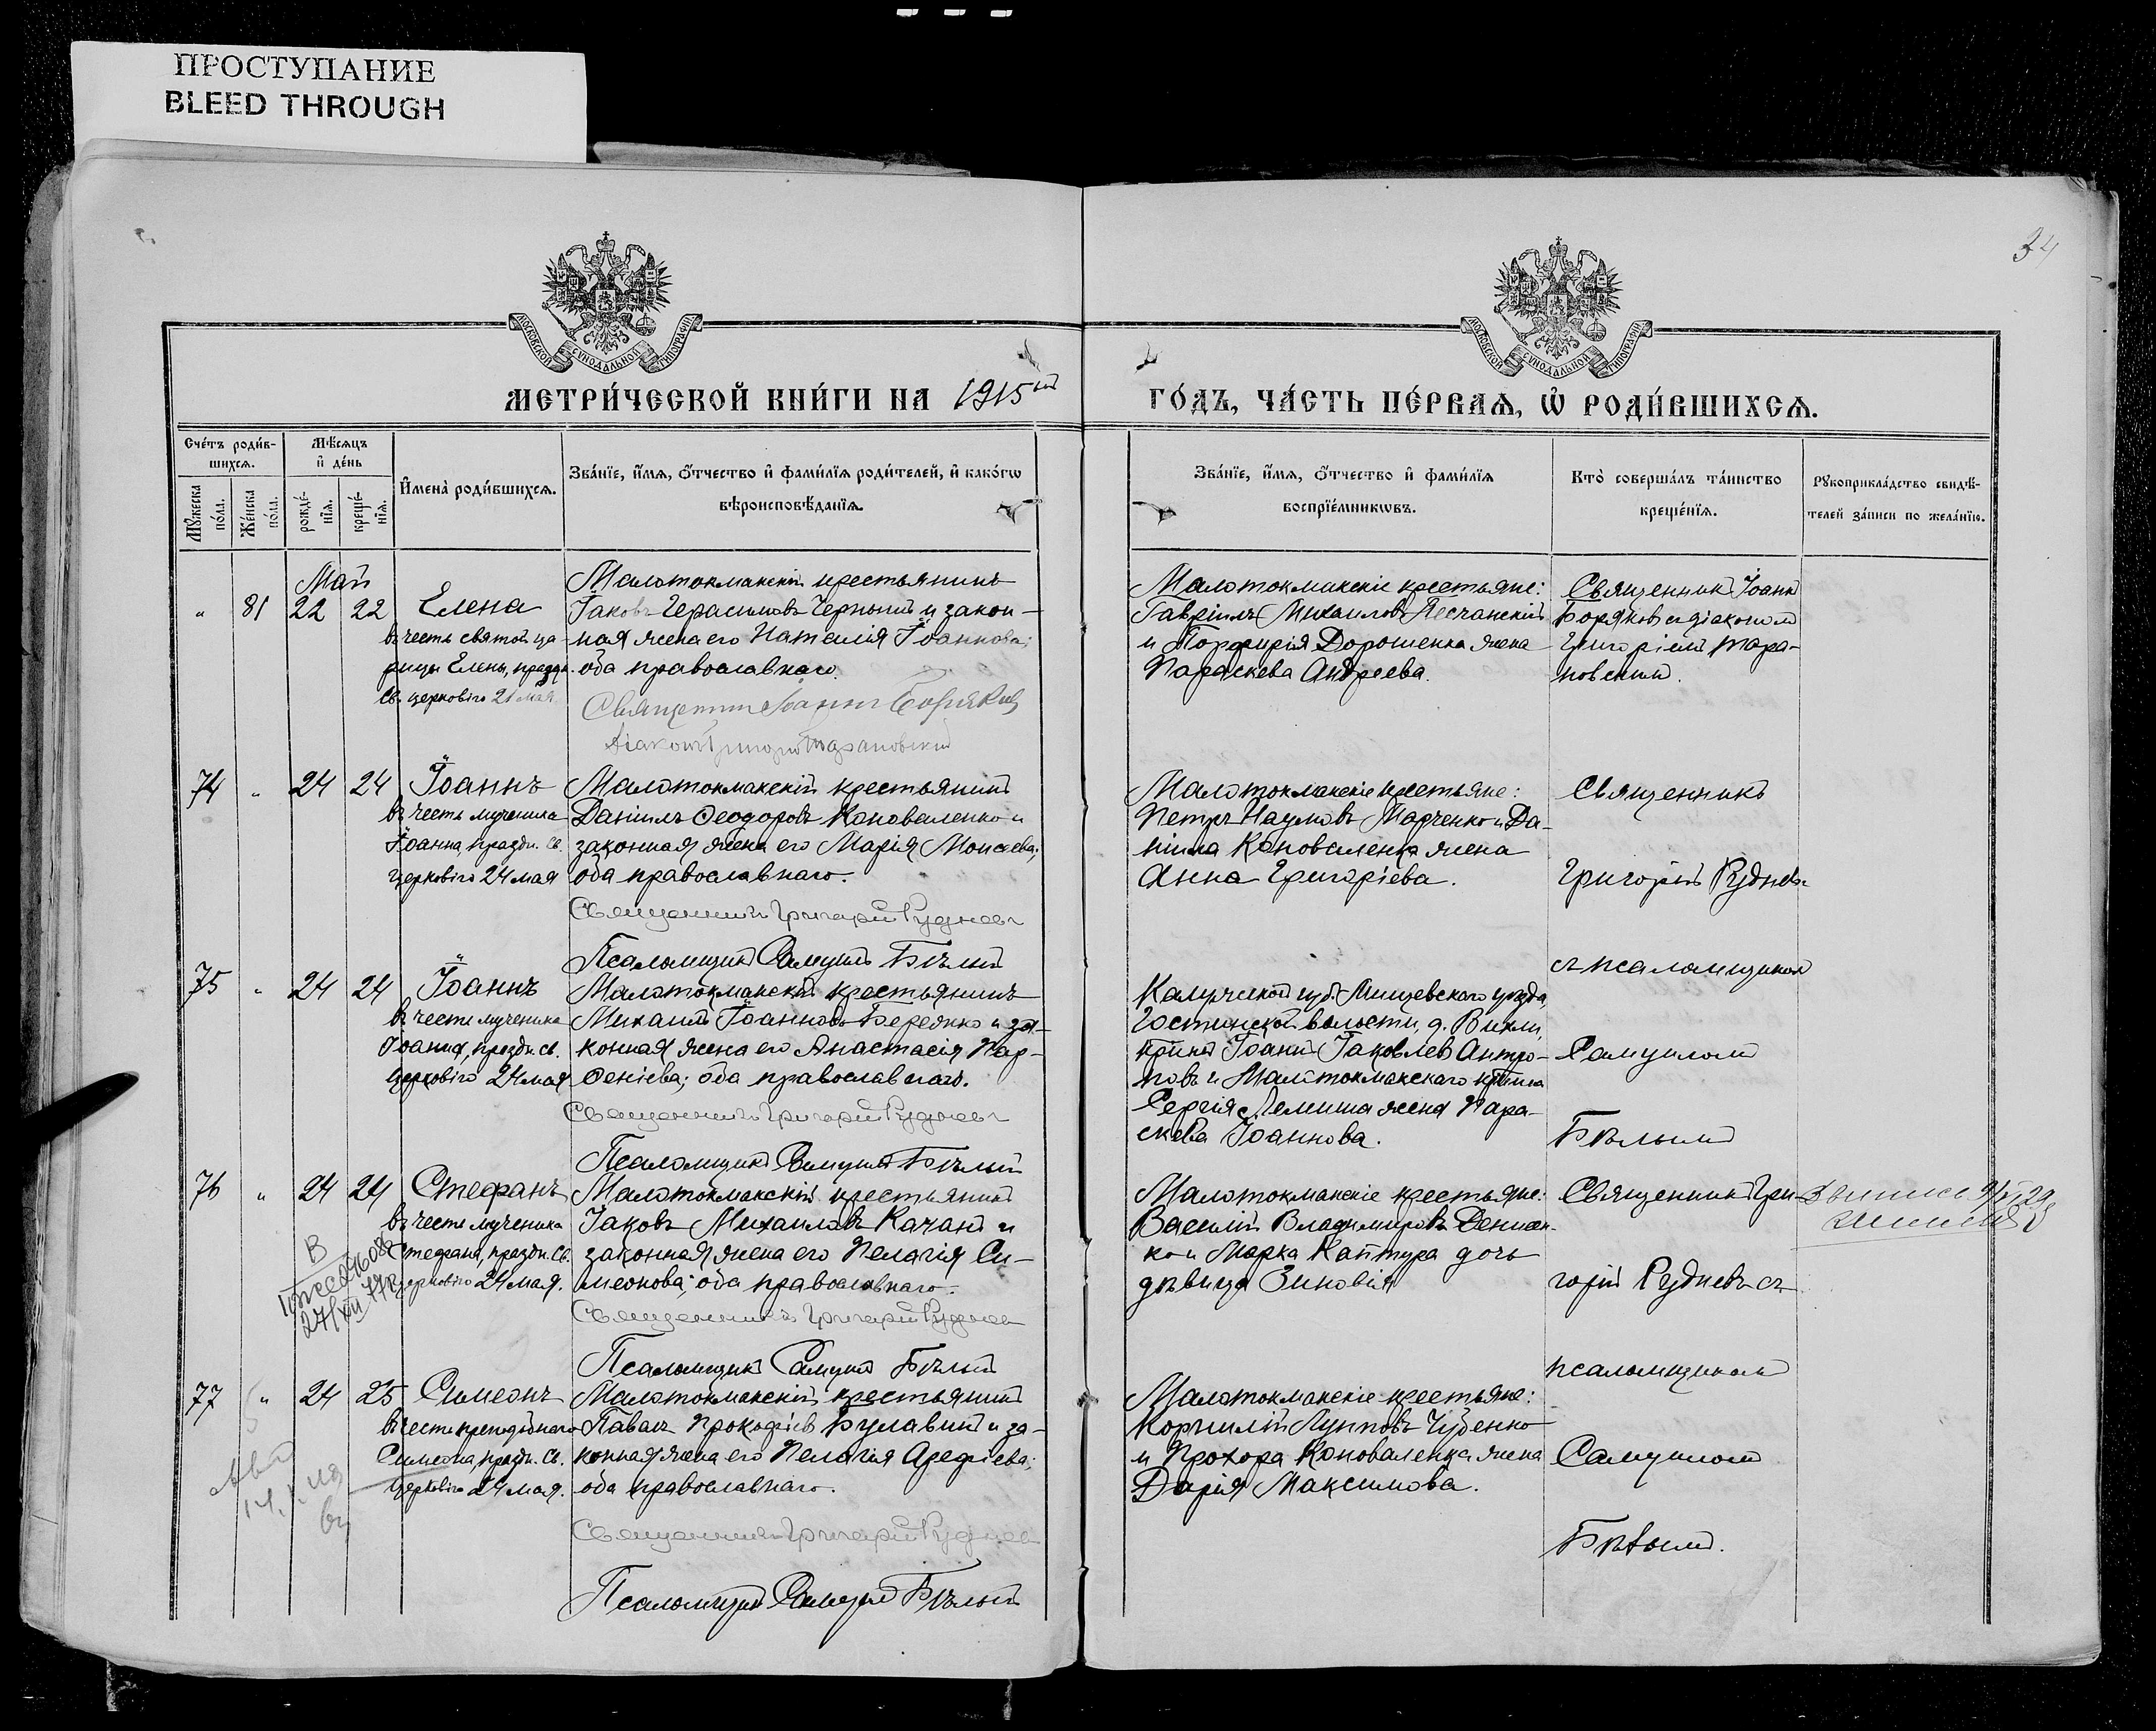 ПРОСТУПАНИЕ
BLEED THROUGH
34
МОСКОВСКОЙ СѴНОДАЛЬНОЙ ТИПОГРАФІИ
МОСКОВСКОЙ СѴНОДАЛЬНОЙ ТИПОГРАФІИ
МЕТРИ́ЧЕСКОЙ КНИ́ГИ НА 1915ый
ГО́ДЪ, ЧА́СТЬ ПЕ́РВАѦ, Ѡ҆ РОДИ́ВШИХСѦ.
Сче́тъ роди́в-
шихсѧ.
Мꙋ́жеска по́ла.
Же́нска по́ла.
Мѣ́сѧцъ
и҆ де́нь
рожде́-
нїѧ.
креще́-
нїѧ.
И҆мена̀ роди́вшихсѧ.
Зва́нїе, и҆́мѧ, ѻ҆́тчество и҆ фами́лїѧ роди́телей, и҆ како́гѡ
вѣроисповѣ́данїѧ.
Зва́нїе, и҆́мѧ, ѻ҆́тчество и҆ фами́лїѧ
воспрїе́мникѡвъ.
Кто̀ соверша́лъ та́инство
креще́нїѧ.
Рꙋкоприкла́дство свидѣ́-
телей за́писи по жела́нїю.
Май
" 81 22 22 Елена
въ честь святой ца-
рицы Елены, праздн.
Св. церковію 21 мая
Малотокмакскій крестьянинъ
Іаковъ Герасимовъ Черный и закон-
ная жена его Наталія Іоаннова;
оба православнаго.
Священникъ Іоаннъ Боряковъ
Діаконъ Григорій Тарановскій
Малотокмакскіе крестьяне:
Гавріилъ Михаиловъ Песчанскій
и Порфирія Дорошенка жена
Параскева Андреева.
Священникъ Іоаннъ
Боряковъ съ діакономъ
Григоріемъ Тара-
новскимъ.
74 " 24 24 Іоаннъ
въ честь мученика
Іоанна, праздн. Св.
церковію 24 мая
Малотокмакскій крестьянинъ
Даніилъ Ѳеодоровъ Коноваленко и
законная жена его Марія Моисеева;
оба православнаго.
Священникъ Григорій Рудневъ
Псаломщикъ Самуилъ Бѣлый
Малотокмакскіе крестьяне:
Петръ Наумовъ Марченко и Да-
ніила Коноваленка жена
Анна Григоріева.
Священникъ
Григорій Рудневъ
съ псаломщикомъ
75 " 24 24 Іоаннъ
въ честь мученика
Іоанна, праздн. св.
церковію 24 мая
Малотокмакскій крестьянинъ
Михаилъ Іоанновъ Бережко и за-
конная жена его Анастасія Пар-
ѳеніева; оба православнаго.
Священникъ Григорій Рудневъ
Псаломщикъ Самуилъ Бѣлый
Калужской губ. Мещевскаго уѣзда,
Гостинской волости, д.
Іоаннъ Іаковлевъ Антро-
повъ и Малотокмакскаго
Сергія Лемиша жена Пара-
скева Іоаннова.
Самуиломъ
Бѣлымъ
76 " 24 24 Стефанъ
въ честь мученика
Стефана, праздн. Св.
церковію 24 мая.
Малотокмакскій крестьянинъ
Іаковъ Михаиловъ Качанъ и
законная жена его Пелагія Си-
меонова; оба православнаго.
Священникъ Григорій Руднев
Псаломщикъ Самуилъ Бѣлый
Малотокмакскіе крестьяне:
Василій Владимировъ
ко и Марка Каптура дочь
дѣвица Зиновія
Священникъ Гри-
горій Рудневъ съ
псаломщикомъ
77 " 24 25 Симеонъ
въ честь преподобнаго
Симеона, праздн. Св.
церковію 24 мая.
Малотокмакскій крестьянинъ
Павелъ Прокофіевъ Булавинъ и за-
конная жена его Пелагія Арефіева;
оба православнаго.
Священникъ Григорій Руднев
Псаломщикъ Самуилъ Бѣлый
Малотокмакскіе крестьяне:
Корнилій Лупповъ Чубенко
и Прохора Коноваленка жена
Дарія Максимова.
Самуиломъ
Бѣлымъ.